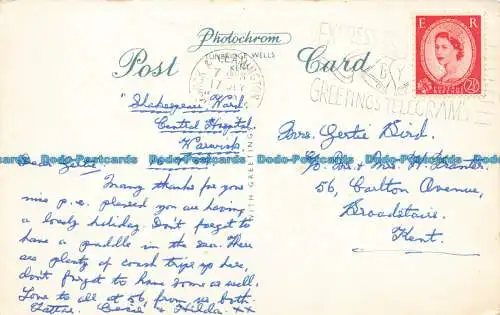 Photochrom
TUNBRIDGE WELLS
KENT
Post Card
E R
2½
LEAMINGTON
17 JLY
EXPRESS
BY
GREETINGS TELEGRAMS
WITH GREETINGS
"Shakespeare Ward.
Central Hospital
Warwick.
Dear Gertie
Many thanks for you
nice p.c. pleased you are having
a lovely holiday. Don't forget to
have a paddle in the sea. There
are plenty of coach trips up here,
don't forget to have some as well.
Love to all at 56, from us both.
Cecil & Hilda. xx
Mrs. Gertie Bird.
c/o Mr. & Mrs. W.
56, Carlton Avenue,
Broadstairs.
Kent.
Dodo-Postcards Dodo-Postcards Dodo-Postcards Dodo-Postcards